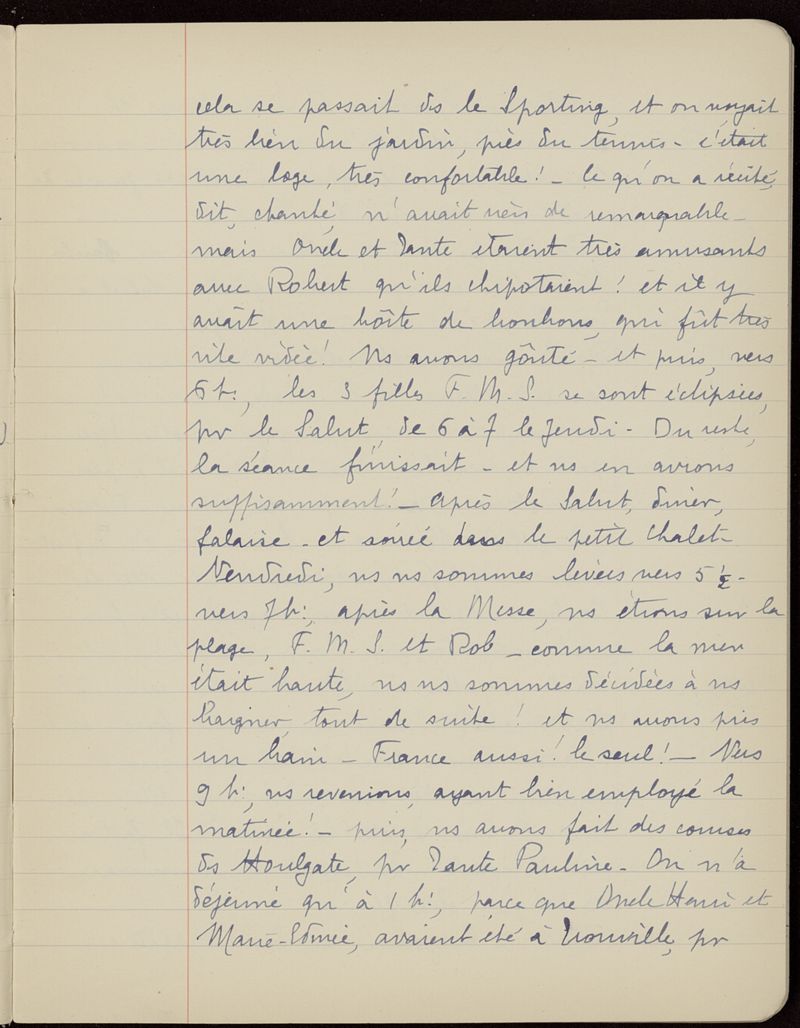 cela se passait ds le Sporting, et on voyait
très bien du jardin, près du tennis - c'était
une loge, très confortable! - Ce qu'on a récité,
dit, chanté, n'avait rien de remarquable -
mais Oncle et Tante étaient très amusants
avec Robert qu'ils chipotaient! et il y
avait une boîte de bonbons, qui fût très
vite vidée! Ns avons goûté - et puis, vers
6 h:, les 3 filles F. M. S. se sont éclipsées,
pr le Salut, de 6 à 7 le Jeudi - Du reste,
la séance finissait - et ns en avions
suffisamment! - Après le Salut, dîner,
falaise - et soirée dans le petit Chalet -
Vendredi, ns ns sommes levées vers 5 ½ -
vers 7 h:, après la Messe, ns étions sur la
plage, F. M. S. et Rob - comme la mer
était haute, ns ns sommes décidées à ns
baigner, tout de suite! et ns avons pris
un bain - France aussi! le seul! - Vers
9 h:, ns revenions, ayant bien employé la
matinée! - puis, ns avons fait des courses
ds Houlgate, pr Tante Pauline - On n'a
déjeuné qu'à 1 h:, parce que Oncle Henri et
Marie-Edmée, avaient été à Trouville, pr